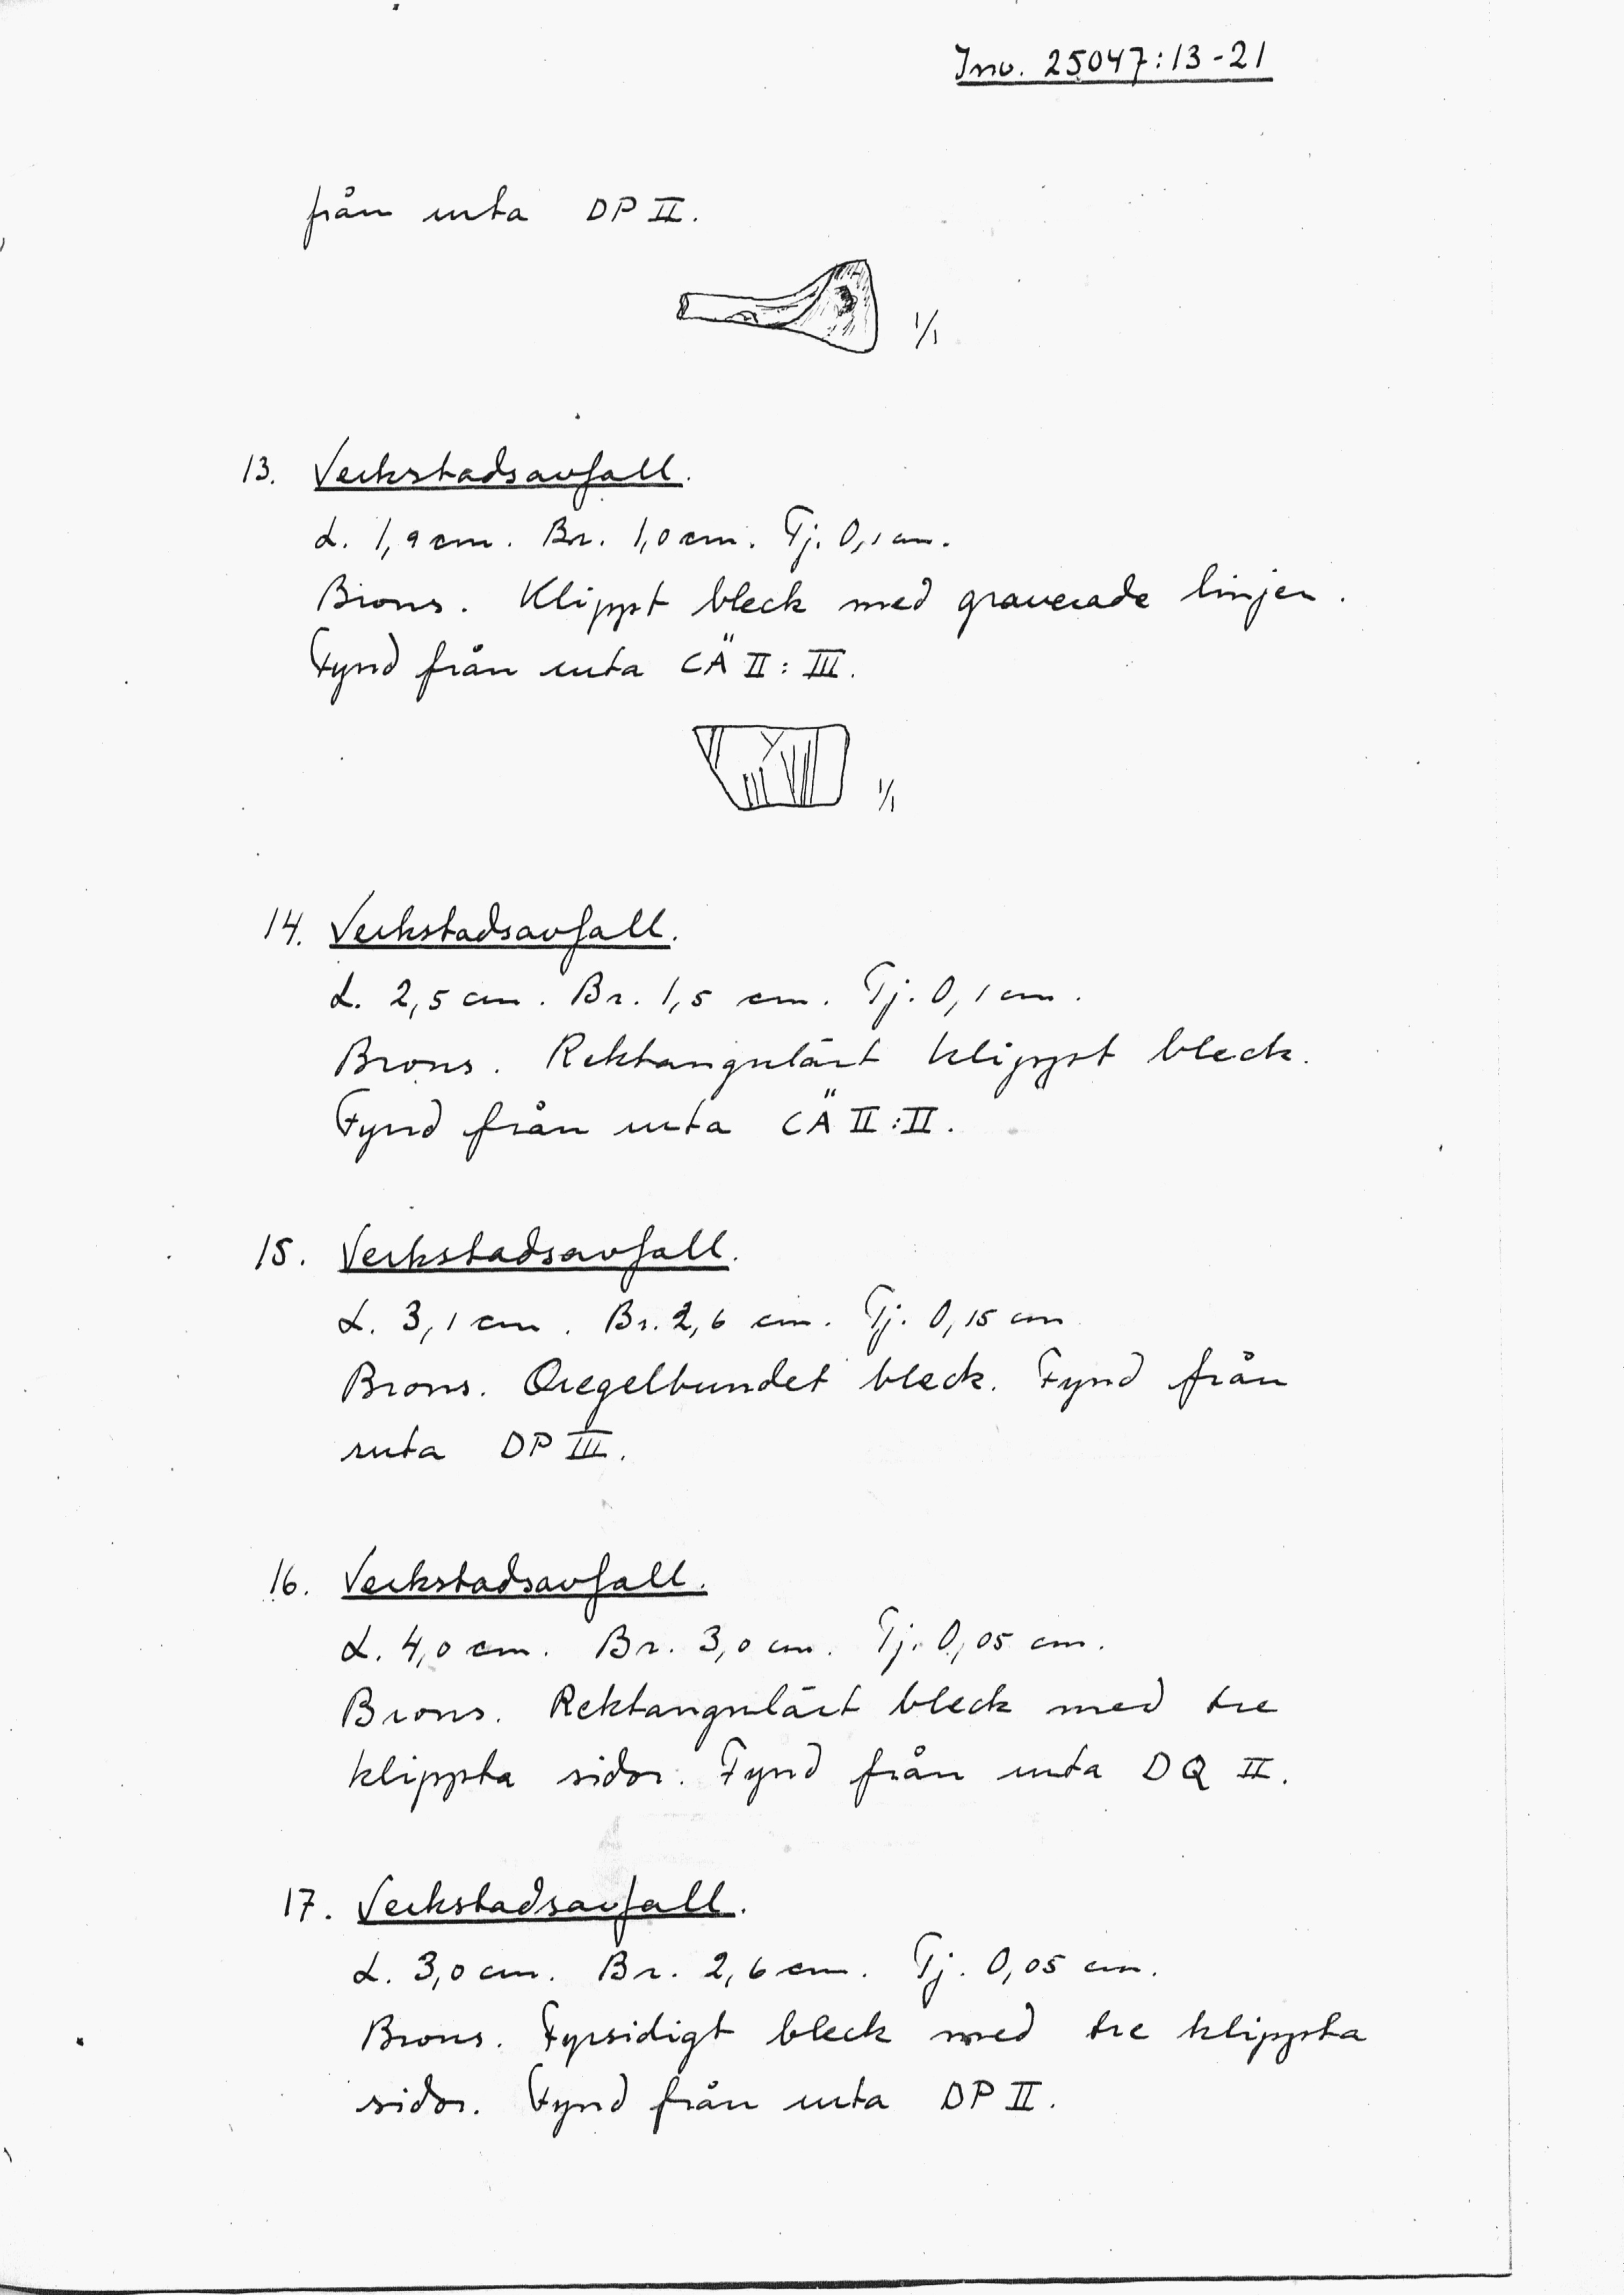 Inv. 25047:13-21
från ruta DP II.
1/1
13. Verkstadsavfall.
L. 1,9 cm. Br. 1,0 cm. Tj. 0,1 cm.
Brons. Klippt bleck med graverade linjer.
Fynd från ruta CÄ II: III.
1/1
14. Verkstadsavfall.
L. 2,5 cm. Br. 1,5 cm. Tj. 0,1 cm.
Brons. Rektangulärt klippt bleck.
Fynd från ruta CÄ II:II.
15. Verkstadsavfall.
L. 3,1 cm. Br. 2,6 cm. Tj. 0,15 cm
Brons. Oregelbundet bleck. Fynd från
ruta DP III.
16. Verkstadsavfall.
L. 4,0 cm. Br. 3,0 cm. Tj. 0,05 cm.
Brons. Rektangulärt bleck med tre
klippta sidor. Fynd från ruta DQ II.
17. Verkstadsavfall.
L. 3,0 cm. Br. 2,6 cm. Tj. 0,05 cm.
Brons. Fyrsidigt bleck med tre klippta
sidor. Fynd från ruta DP II.